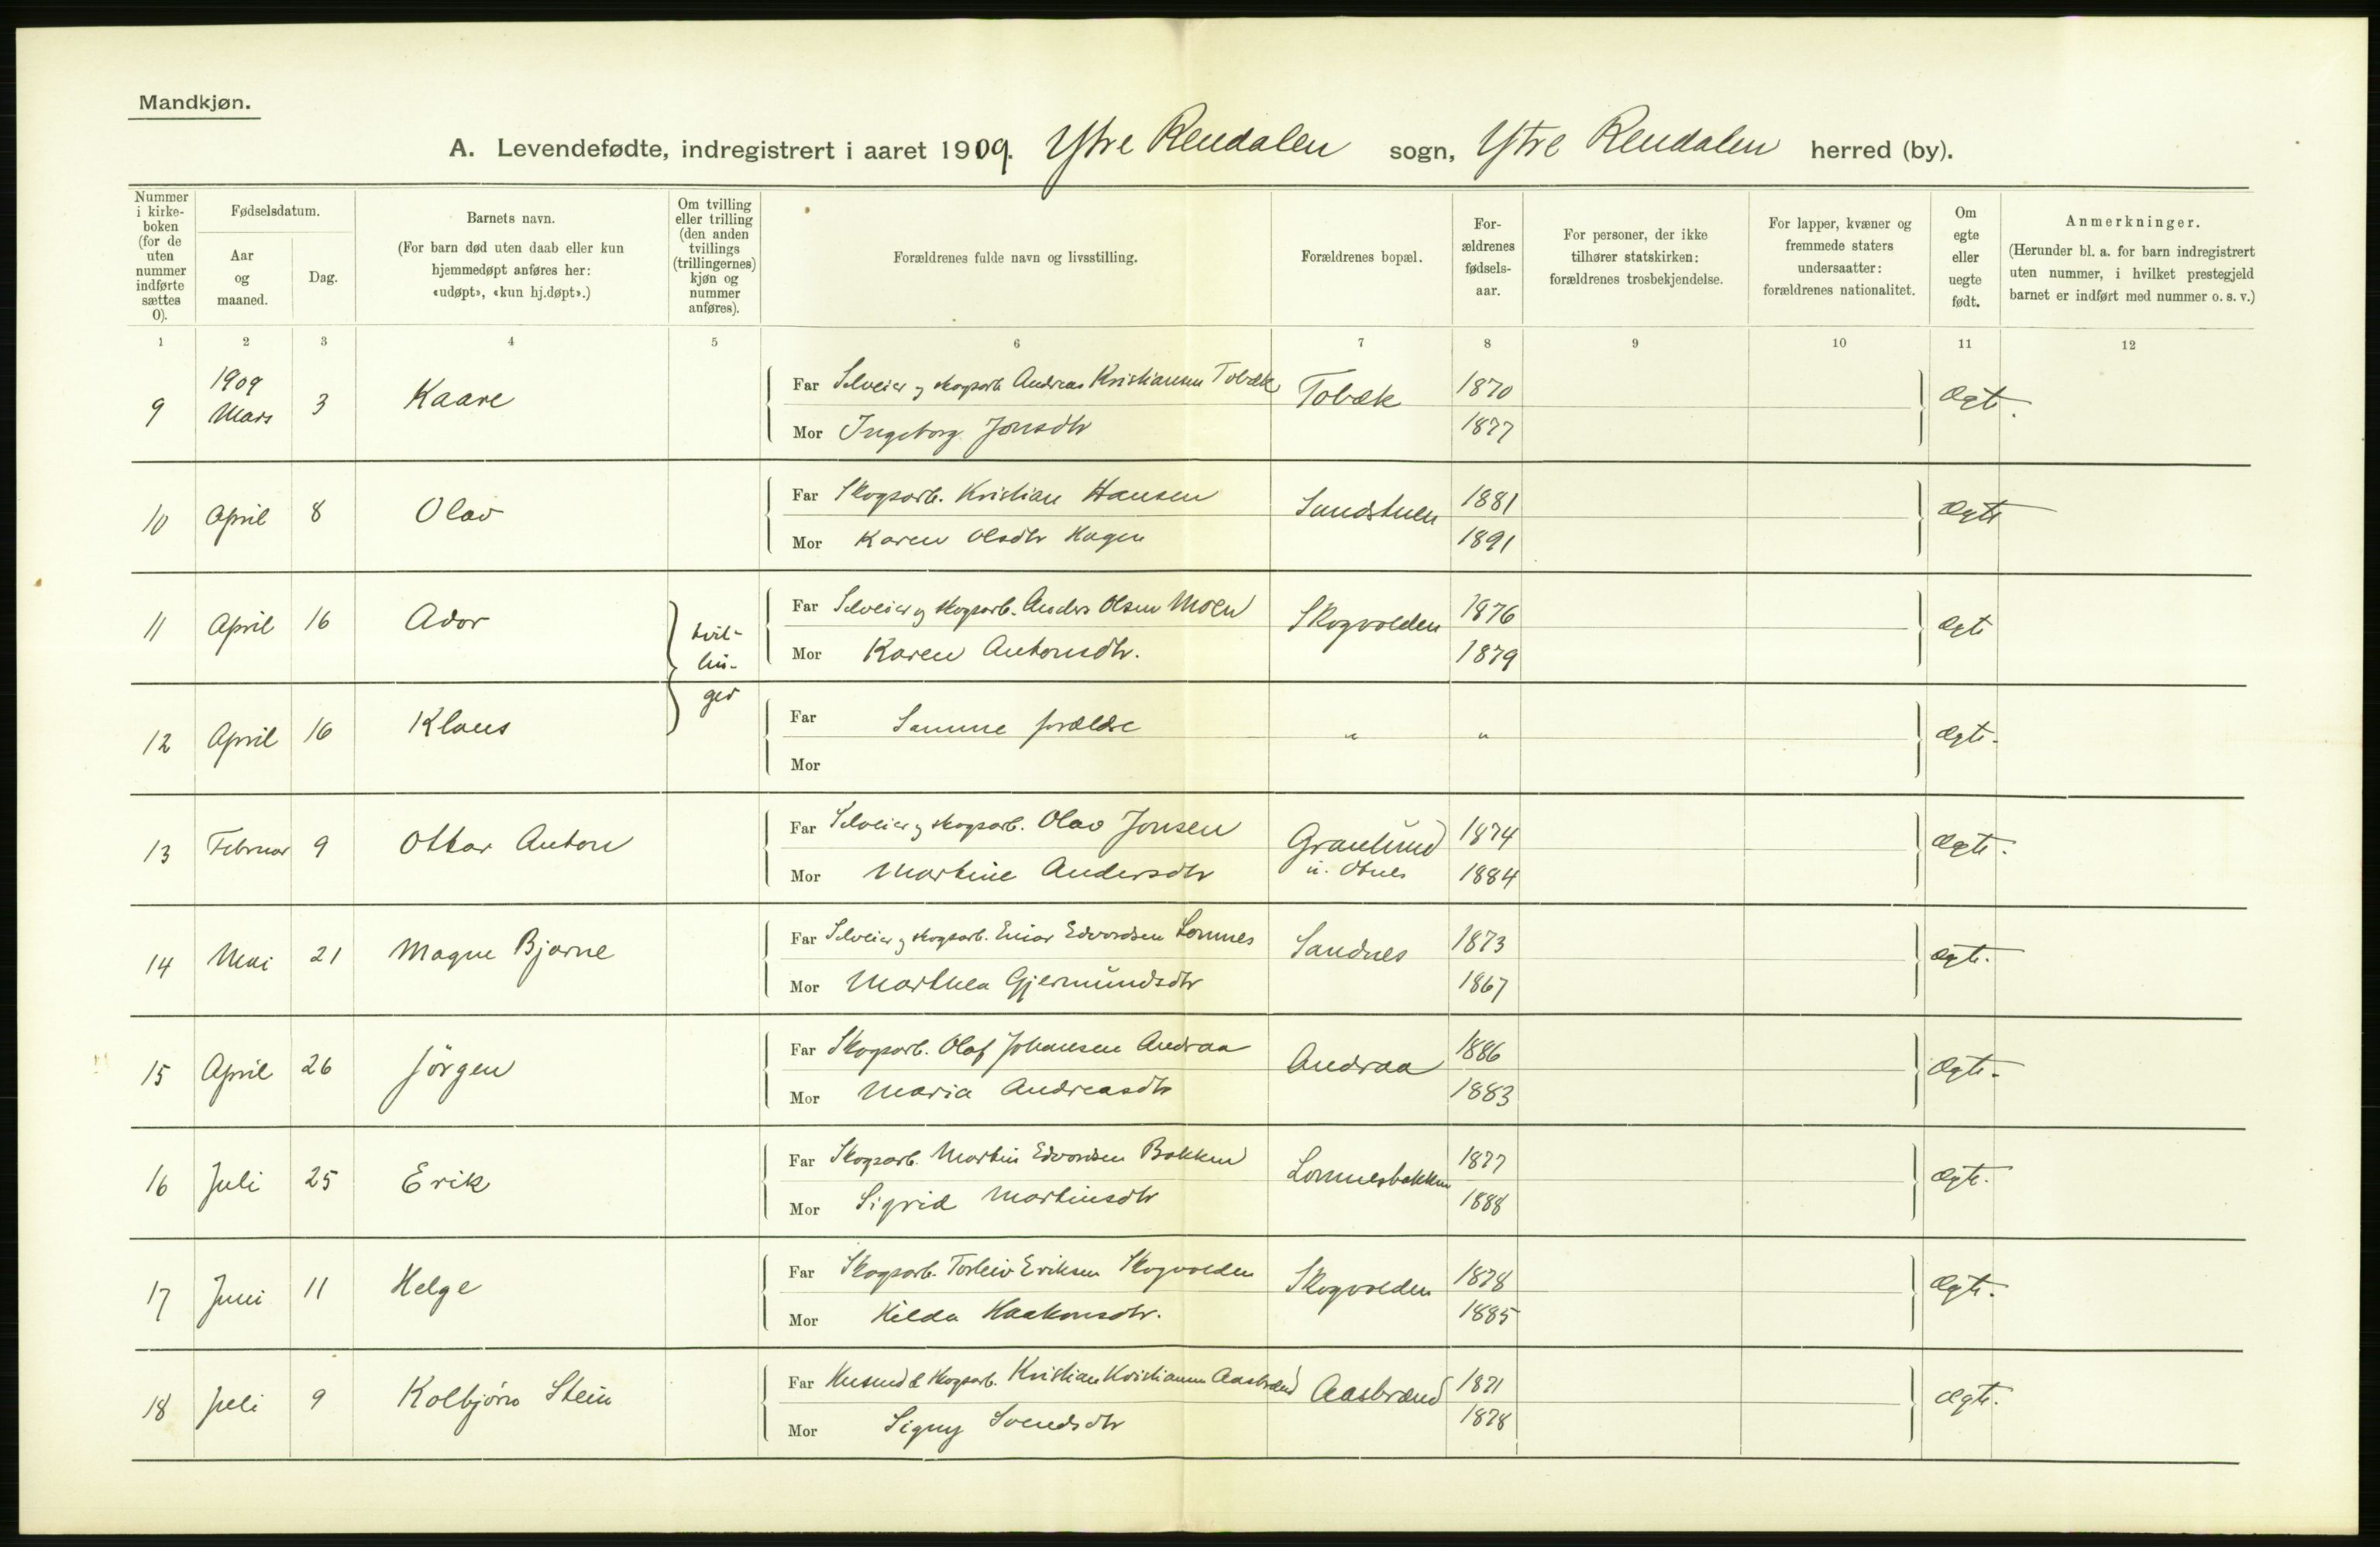 Mandkjøn.
A. Levendefødte, indregistrert i aaret 1909. Ytre Rendalen sogn, Ytre Rendalen herred (by).
Nummer i kirke-boken (for de uten nummer indførte sættes 0).
Fødselsdatum.
Aar og maaned.
Dag.
Barnets navn.
(For barn død uten daab eller kun hjemmedøpt anføres her: «udøpt», «kun hj.døpt».)
Om tvilling eller trilling (den anden tvillings (trillingernes) kjøn og nummer anføres).
Forældrenes fulde navn og livsstilling.
Forældrenes bopæl.
For-ældrenes fødsels-aar.
For personer, der ikke tilhører statskirken: forældrenes trosbekjendelse.
For lapper, kvæner og fremmede staters undersaatter: forældrenes nationalitet.
Om egte eller uegte født.
Anmerkninger.
(Herunder bl. a. for barn indregistrert uten nummer, i hvilket prestegjeld barnet er indført med nummer o. s. v.)
1 2 3 4 5 6 7 8 9 10 11 12
9 1909 Mars 3 Kaare Far Selveier og skogsarb. Andreas Kristiansen Tobæk Tobæk 1870 Ægte.
Mor Ingeborg Jonsdtr 1877
10 April 8 Olav Far Skogsarb. Kristian Hansen Sandstuen 1881 Ægte
Mor Karen Olsdtr Hagen 1891
11 April 16 Ador tvil-lin-ger Far Selveier og skogsarb. Anders Olsen Moen Skogvolden 1876 Ægte
Mor Karen Antonsdtr. 1879
12 April 16 Klaus Far Samme forældre " " Ægte.
Mor
13 Februar 9 Ottar Anton Far Selveier og skogsarb. Olav Jonsen Granlund 1874 Ægte.
Mor Martine Andersdtr u. Otnes 1884
14 Mai 21 Magne Bjarne Far Selveier og skogsarb. Einar Edvardsen Lomnes Sandnes 1873 Ægte.
Mor Marthea Gjermundsdtr 1867
15 April 26 Jörgen Far Skogsarb. Olaf Johansen Andraa Andraa 1886 Ægte.
Mor Maria Andreasdtr 1883
16 Juli 25 Erik Far Skogsarb. Martin Edvardsen Bakken Lomnesbakken 1877 Ægte.
Mor Sigrid Martinsdtr 1888
17 Juni 11 Helge Far Skogsarb. Torleiv Eriksen Skogvolden Skogvolden 1878 Ægte.
Mor Hilda Haakonsdtr. 1885
18 Juli 9 Kolbjörn Stein Far Husmd & skogsarb. Kristian Kristiansen Aasbrænd Aasbrænd 1871 Ægte.
Mor Signy Svendsdtr 1878